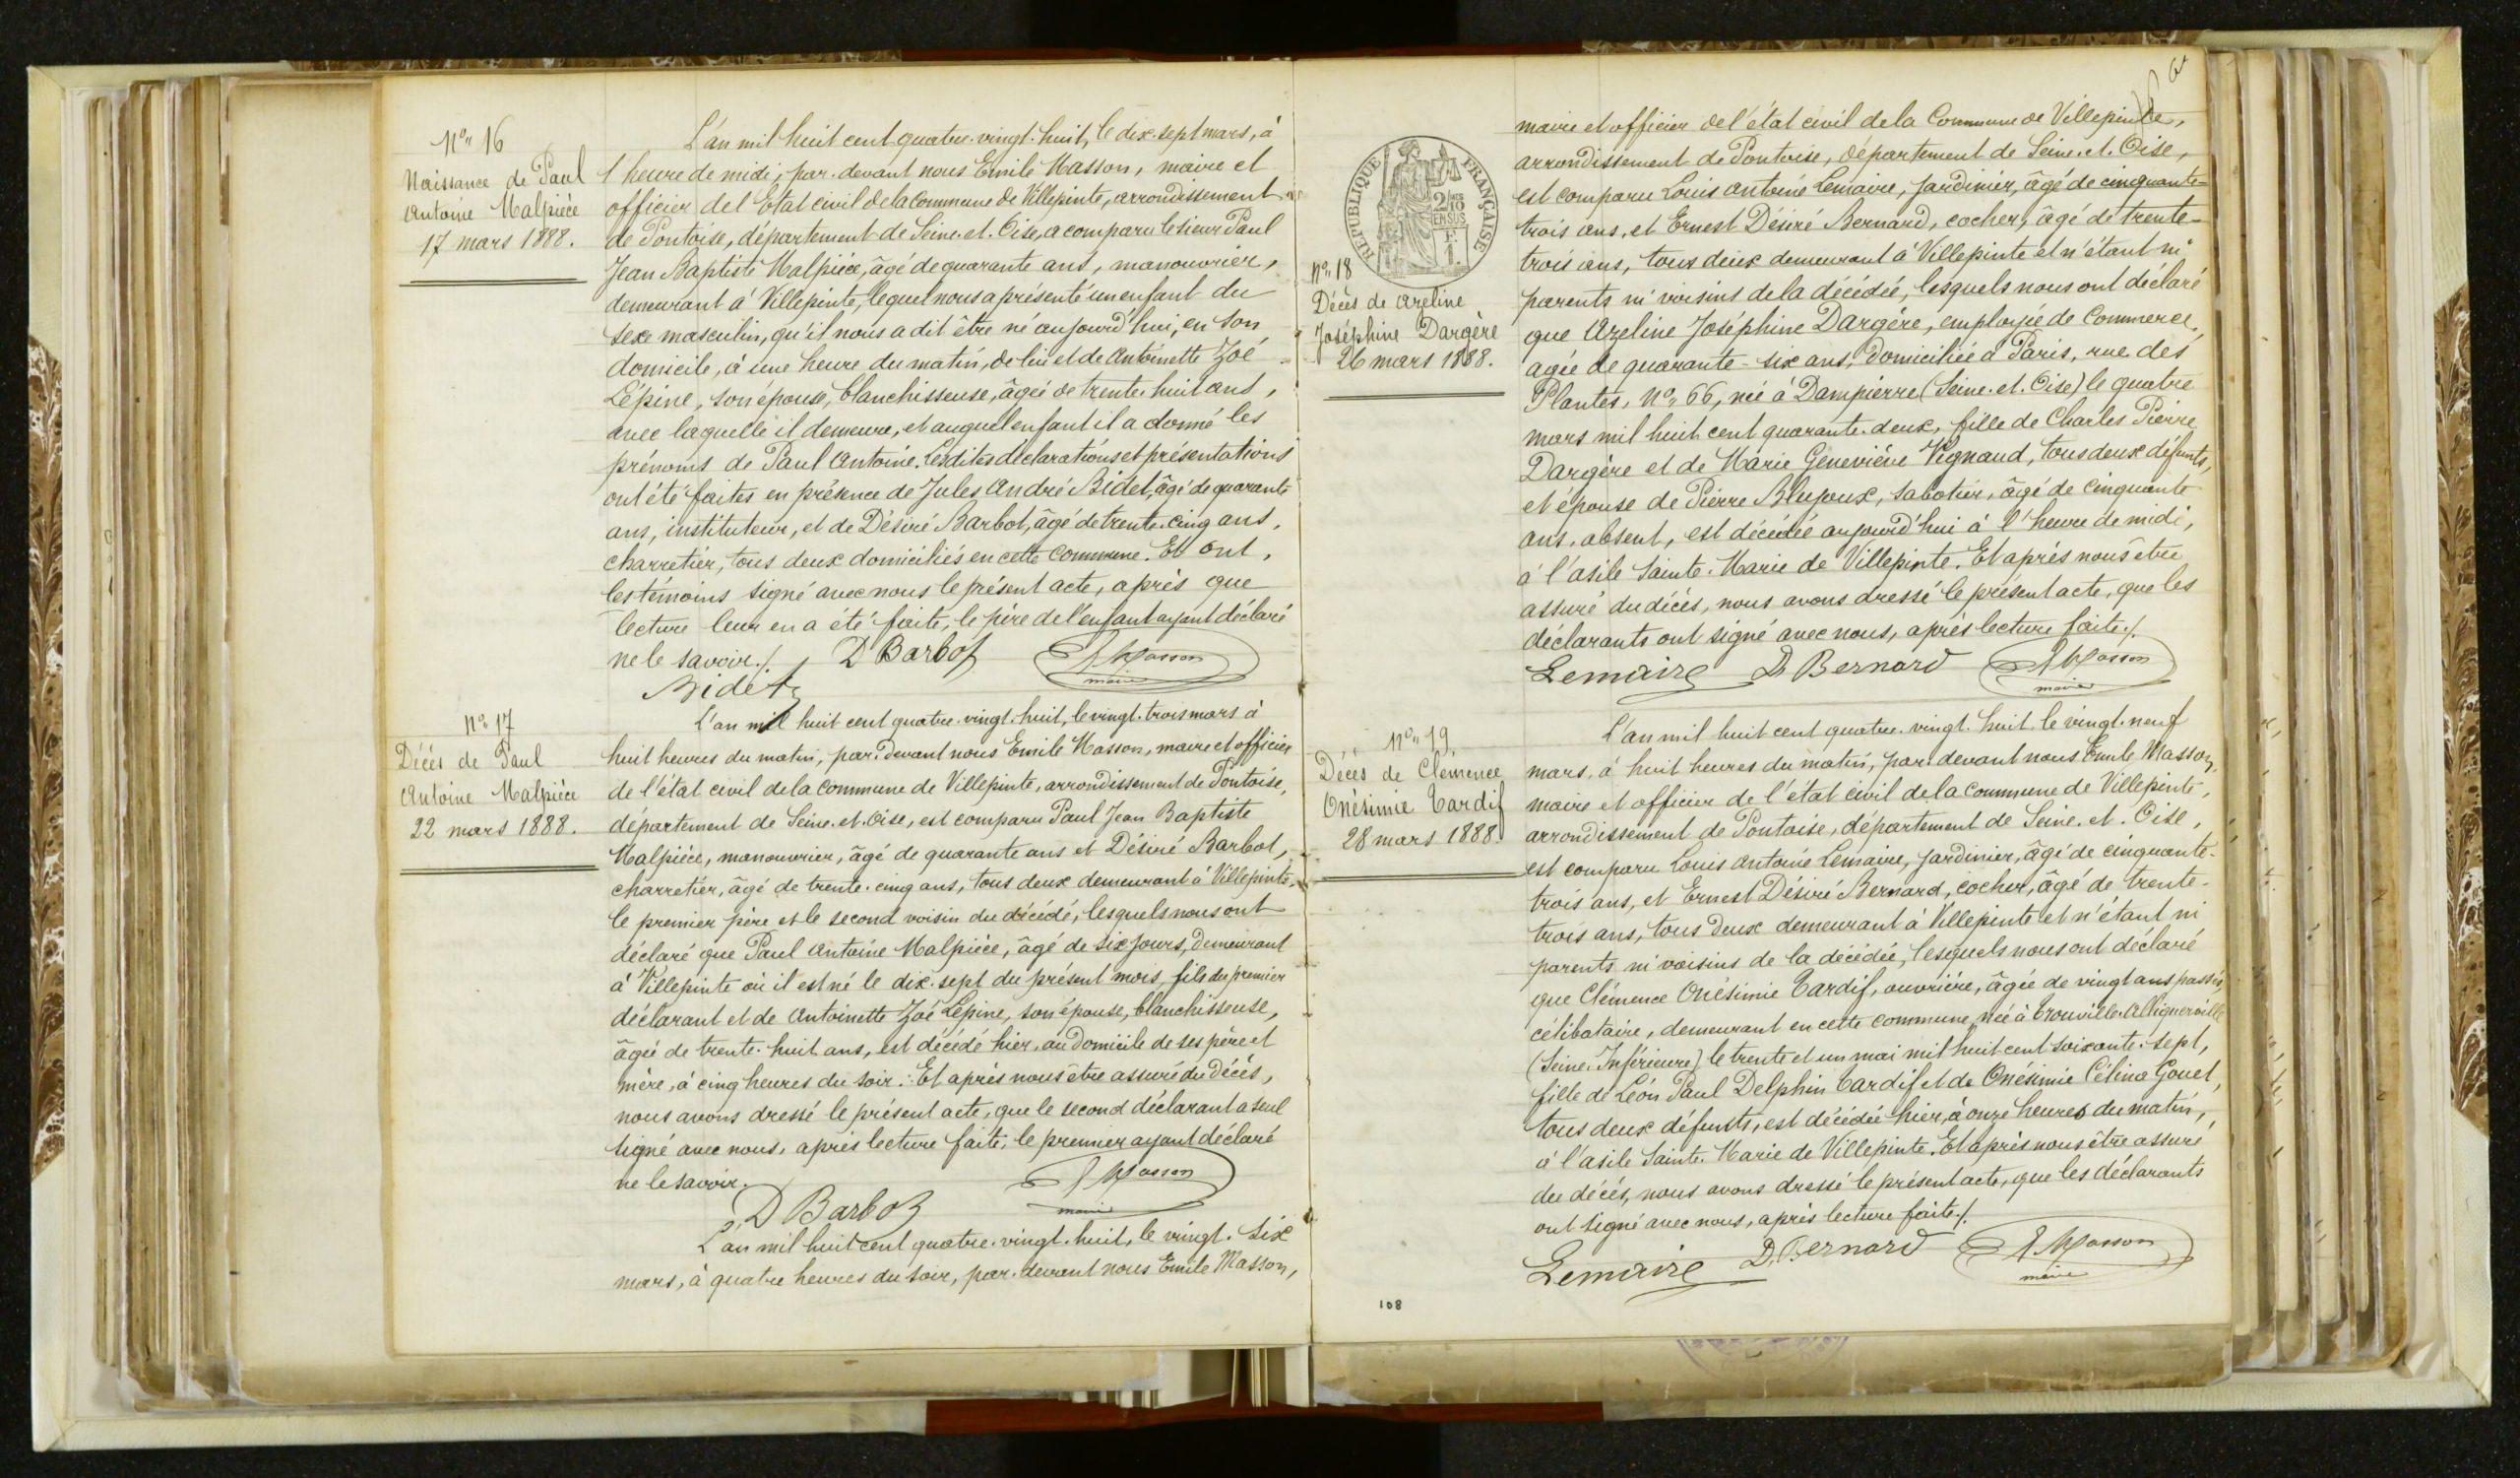 Nº 16
Naissance de Paul
Antoine Malpièce
17 mars 1888.
L'an mil huit cent quatre-vingt-huit, le dix-sept mars, à
1 heure de midi, par-devant nous Emile Masson, maire et
officier del'Etat civil de la commune de Villepinte, arrondissement
de Pontoise, département de Seine-et-Oise, a comparu le sieur Paul
Jean Baptiste Malpièce, âgé de quarante ans, manouvrier,
demeurant à Villepinte, lequel nous a présenté un enfant du
sexe masculin, qu'il nous a dit être né aujourd'hui, en son
domicile, à une heure du matin, de lui et de Antoinette Zoé
Lépine, son épouse, blanchisseuse, âgée de trente-huit ans,
avec laquelle il demeure, et auquel enfant il a donné les
prénoms de Paul Antoine. Lesdites déclarations et présentations
ont été faites en présence de Jules André Bidet, âgé de quarante
ans, instituteur, et de Désiré Barbot, âgé de trente-cinq ans,
charretier, tous deux domiciliés en cette commune. Et ont,
les témoins signé avec nous le présent acte, après que
lecture leur en a été faite, le père de l'enfant ayant déclaré
ne le savoir./.
D Barbot
E Masson
maire
Bidet
Nº 17
Décès de Paul
Antoine Malpièce
22 mars 1888.
L'an mil huit cent quatre-vingt-huit, le vingt-trois mars à
huit heures du matin, par-devant nous Emile Masson, maire et officier
de l'état civil de la commune de Villepinte, arrondissement de Pontoise,
département de Seine-et-Oise, est comparu Paul Jean Baptiste
Malpièce, manouvrier, âgé de quarante ans et Désiré Barbot,
charretier, âgé de trente-cinq ans, tous deux demeurant à Villepinte,
le premier père et le second voisin du décédé, lesquels nous ont
déclaré que Paul Antoine Malpièce, âgé de six jours, demeurant
à Villepinte où il est né le dix-sept du présent mois, fils du premier
déclarant et de Antoinette Zoé Lépine, son épouse, blanchisseuse,
âgée de trente-huit ans, est décédé hier, au domicile de ses père et
mère, à cinq heures du soir. Et après nous être assuré du décès,
nous avons dressé le présent acte, que le second déclarant a seul
signé avec nous, après lecture faite, le premier ayant déclaré
ne le savoir.
D Barbot
E Masson
maire
L'an mil huit cent quatre-vingt-huit, le vingt-six
mars, à quatre heures du soir, par-devant nous Emile Masson,
RÉPUBLIQUE FRANÇAISE
2/10
EN SUS
F.
1.
Nº 18
Décès de Azeline
Joséphine Dargère
26 mars 1888.
maire et officier de l'état civil de la Commune de Villepinte,
arrondissement de Pontoise, département de Seine-et-Oise,
est comparu Louis Antoine Lemaire, jardinier, âgé de cinquante-
trois ans, et Ernest Désiré Bernard, cocher, âgé de trente-
trois ans, tous deux demeurant à Villepinte et n'étant ni
parents ni voisins de la décédée, lesquels nous ont déclaré
que Azeline Joséphine Dargère, employée de Commerce,
agée de quarante-six ans, domiciliée à Paris, rue des
Plantes, Nº 66, née à Dampierre (Seine-et-Oise) le quatre
mars mil huit cent quarante-deux, fille de Charles Pierre
Dargère et de Marie Geneviève Vignaud, tous deux défunts,
et épouse de Pierre Blujoux, sabotier, âgé de cinquante
ans, absent, est décédée aujourd'hui à 1 heure de midi,
à l'asile Sainte-Marie de Villepinte. Et après nous être
assuré du décès, nous avons dressé le présent acte, que les
déclarants ont signé avec nous, après lecture faite./.
Lemaire D. Bernard E Masson
maire
Nº 19.
Décès de Clémence
Onésimie Tardif
28 mars 1888.
L'an mil huit cent quatre-vingt-huit, le vingt-neuf
mars, à huit heures du matin, par-devant nous Emile Masson,
maire et officier de l'état civil de la commune de Villepinte,
arrondissement de Pontoise, département de Seine-et-Oise,
est comparu Louis Antoine Lemaire, jardinier, âgé de cinquante-
trois ans, et Ernest Désiré Bernard, cocher, âgé de trente-
trois ans, tous deux demeurant à Villepinte et n'étant ni
parents ni voisins de la décédée, lesquels nous ont déclaré
que Clémence Onésimie Tardif, ouvrière, âgée de vingt ans passés,
célibataire, demeurant en cette commune, née à Trouville-Alliquerville
(Seine-Inférieure) le trente et un mai mil huit cent soixante-sept,
fille de Léon Paul Delphin Tardif et de Onésimie Célina Gouel,
tous deux défunts, est décédée hier, à onze heures du matin,
à l'asile Sainte-Marie de Villepinte. Et après nous être assuré
du décès, nous avons dressé le présent acte, que les déclarants
ont signé avec nous, après lecture faite./.
Lemaire D. Bernard E Masson
maire
108